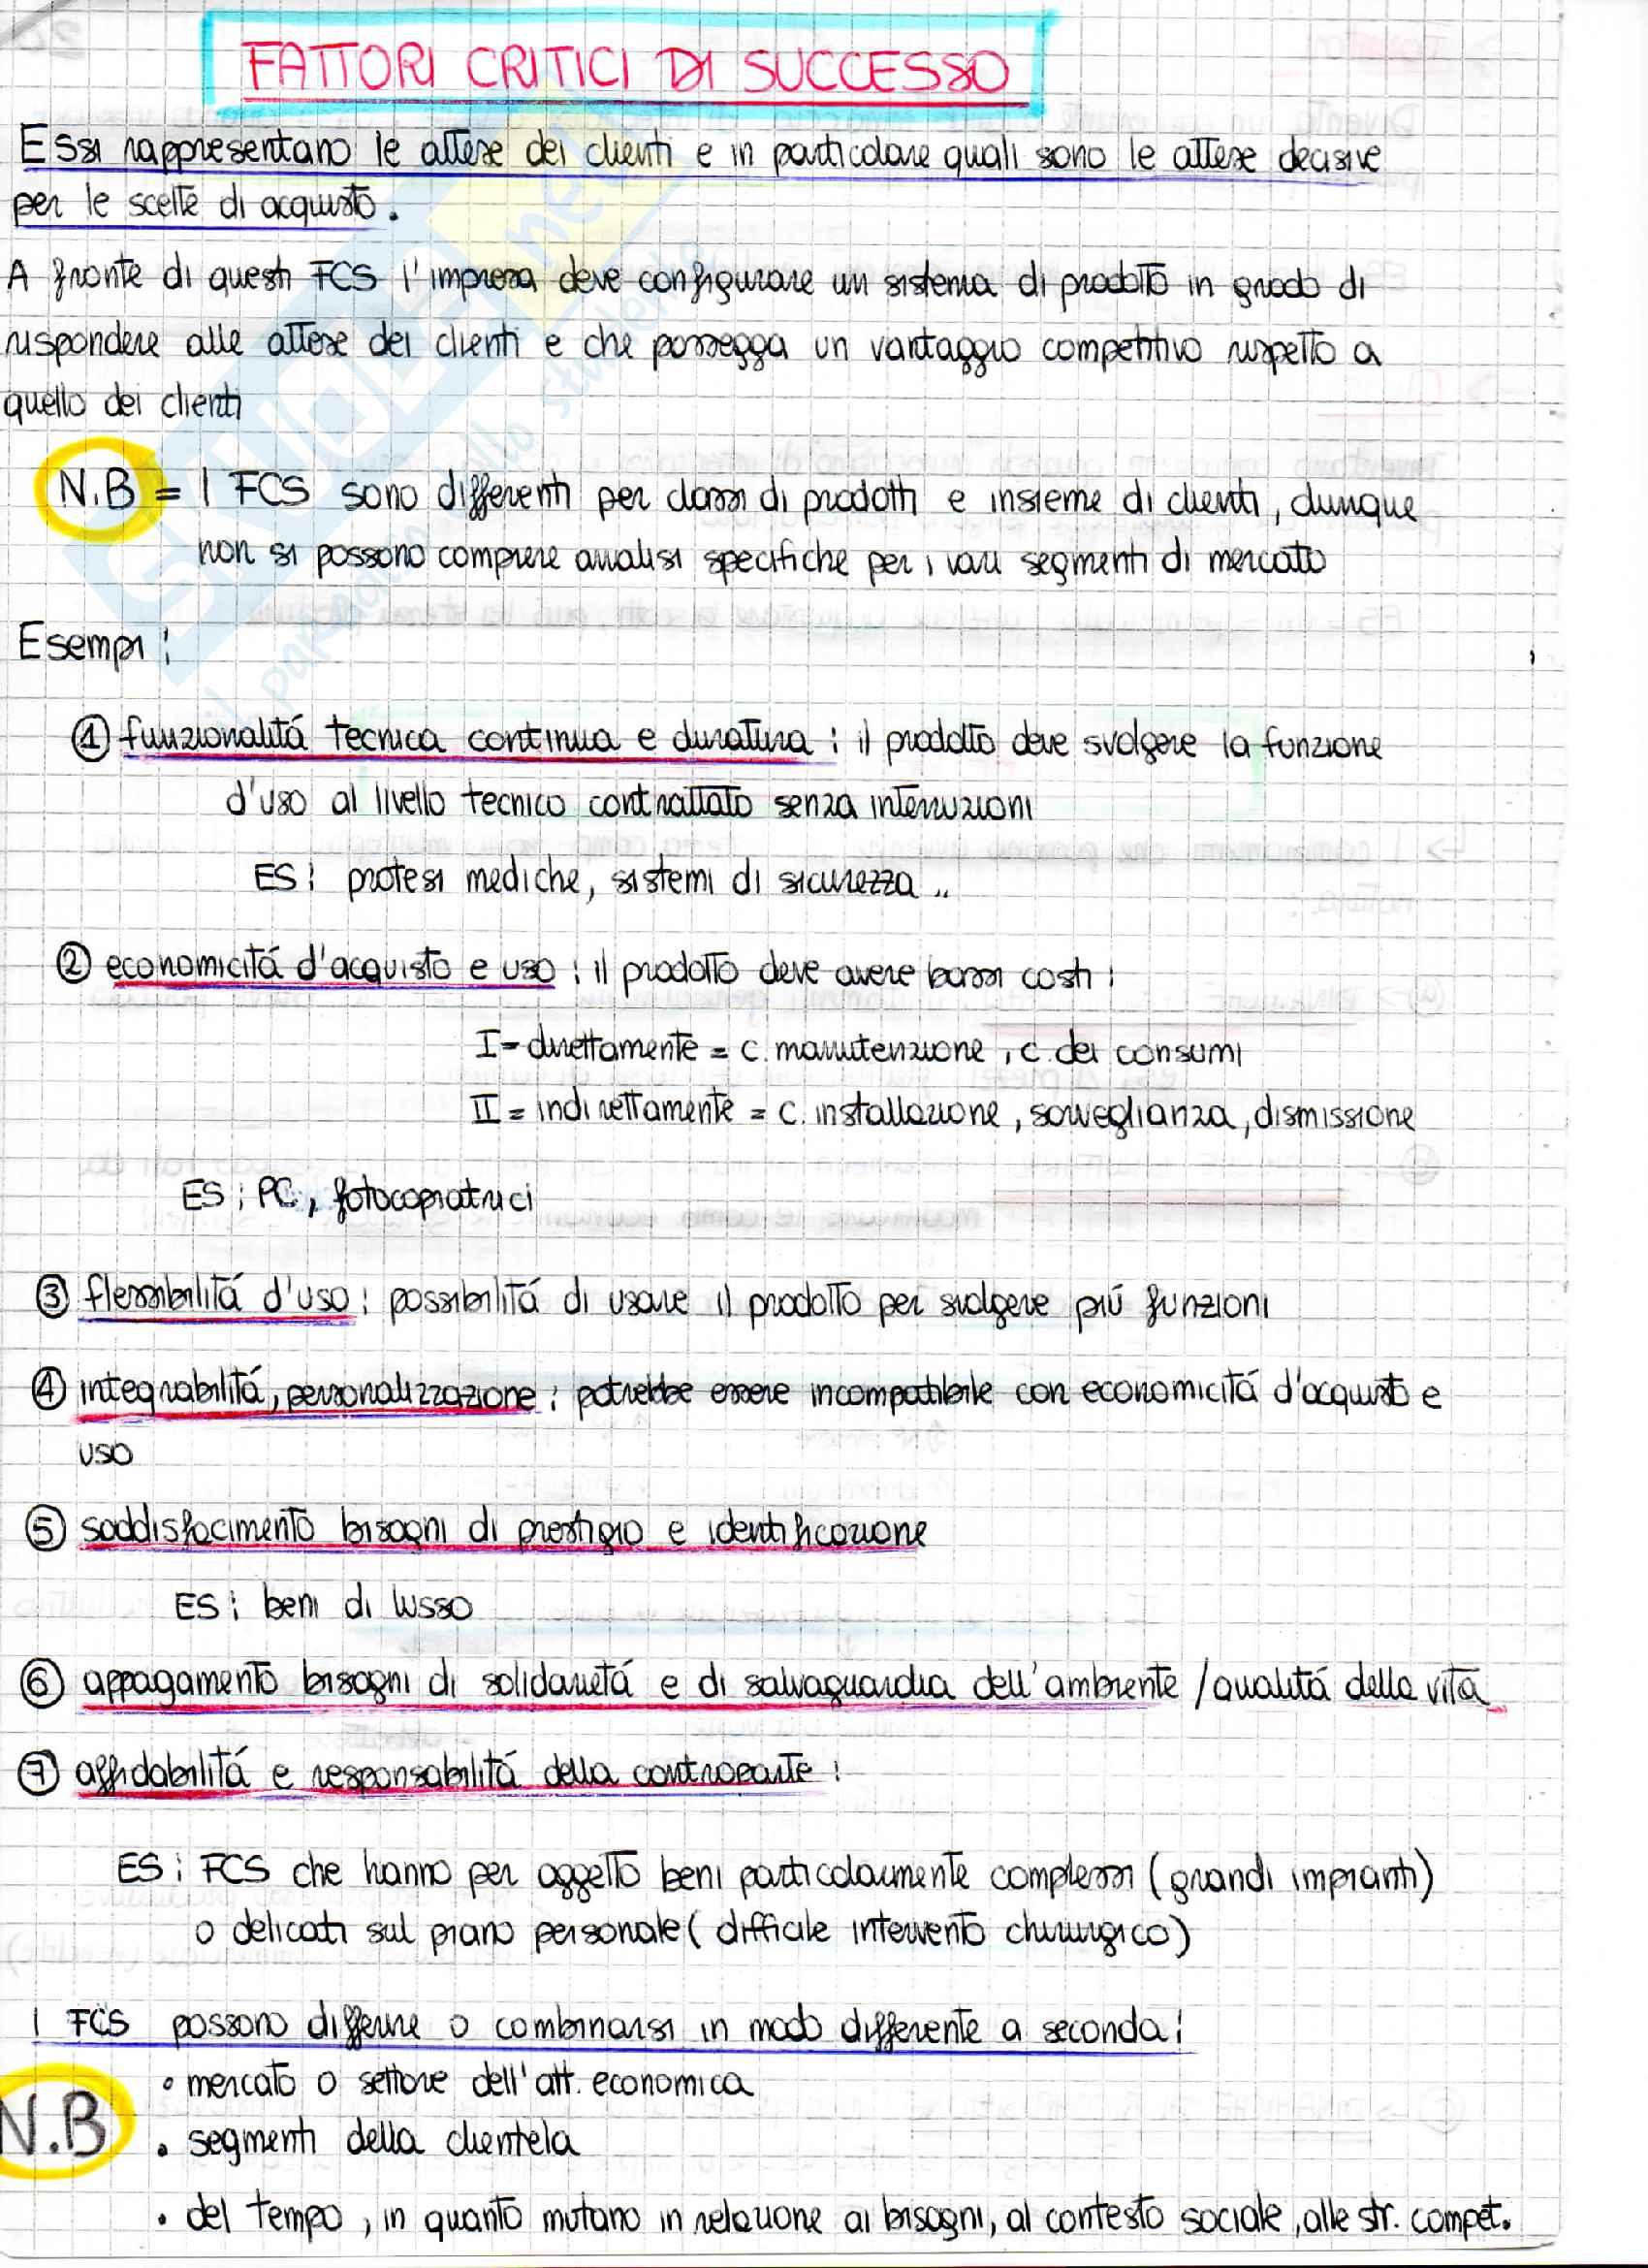 FATTORI CRITICI DI SUCCESSO
Essi rappresentano le attese dei clienti e in particolare quali sono le attese decisive
per le scelte di acquisto.
A fronte di questi FCS l'impresa deve configurare un sistema di prodotto in grado di
rispondere alle attese dei clienti e che possegga un vantaggio competitivo rispetto a
quello dei clienti
N.B = I FCS sono differenti per classi di prodotti e insieme di clienti, dunque
non si possono compiere analisi specifiche per i vari segmenti di mercato
Esempi:
① funzionalitá tecnica continua e duratura: il prodotto deve svolgere la funzione
d'uso al livello tecnico contrattato senza interruzioni
ES: protesi mediche, sistemi di sicurezza..
② economicitá d'acquisto e uso: il prodotto deve avere bassi costi:
I = direttamente = c. manutenzione, c. dei consumi
II = indirettamente = c. installazione, sorveglianza, dismissione
ES: PC, fotocopiatrici
③ flessibilitá d'uso: possibilitá di usare il prodotto per svolgere piú funzioni
④ integrabilitá, personalizzazione: potrebbe essere incompatibile con economicitá d'acquisto e
uso
⑤ soddisfacimento bisogni di prestigio e identificazione
ES: beni di lusso
⑥ appagamento bisogni di solidarietá e di salvaguardia dell'ambiente / qualitá della vita
⑦ affidabilitá e responsabilitá della controparte:
ES: FCS che hanno per oggetto beni particolarmente complessi (grandi impianti)
o delicati sul piano personale (difficile intervento chirurgico)
I FCS possono differire o combinarsi in modo differente a seconda:
• mercato o settore dell'att. economica
N.B • segmenti della clientela
• del tempo, in quanto mutano in relazione ai bisogni, al contesto sociale, alle str. compet.